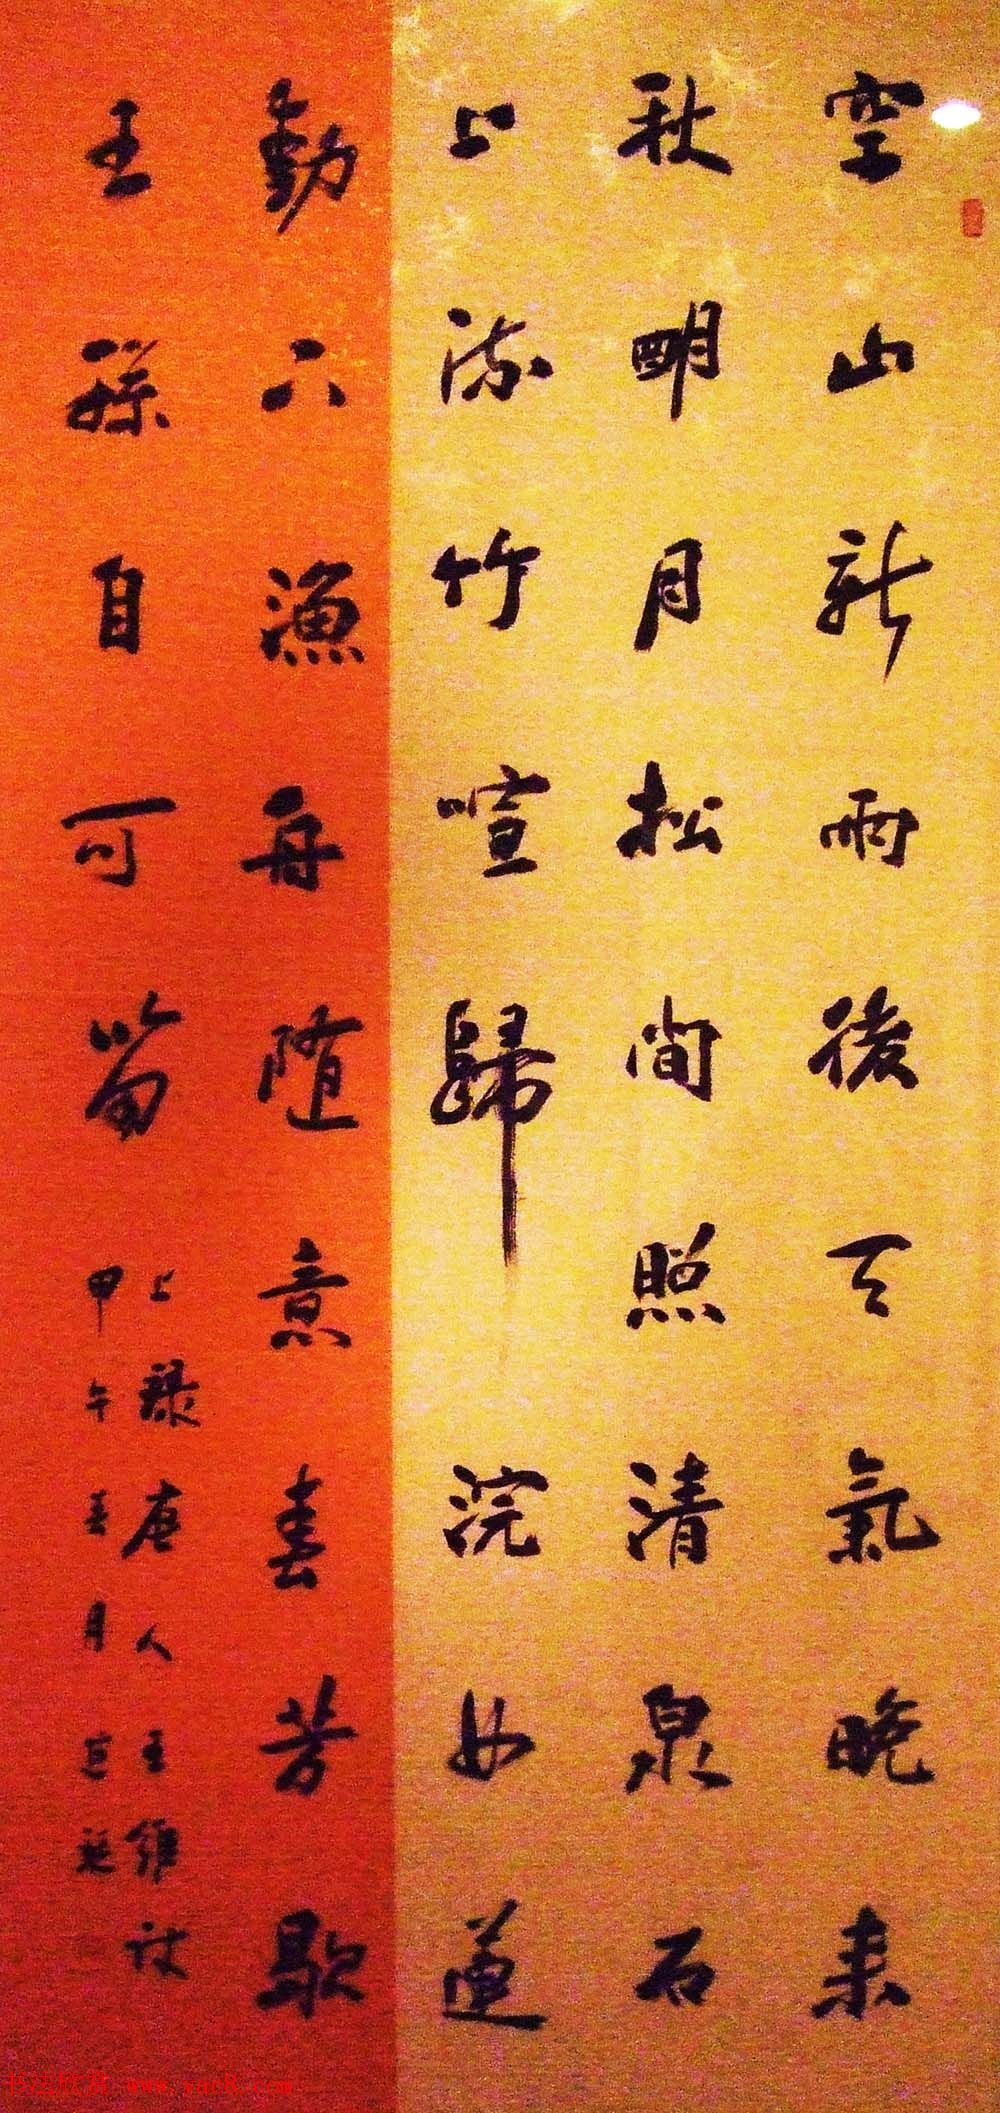 空山新雨後天氣晚来
秋明月松間照清泉石
上流竹喧歸浣女蓮
動下漁舟随意春芳歇
王孫自可留
上録唐人王維詩
甲午春月
书法欣赏 www.yac8.com